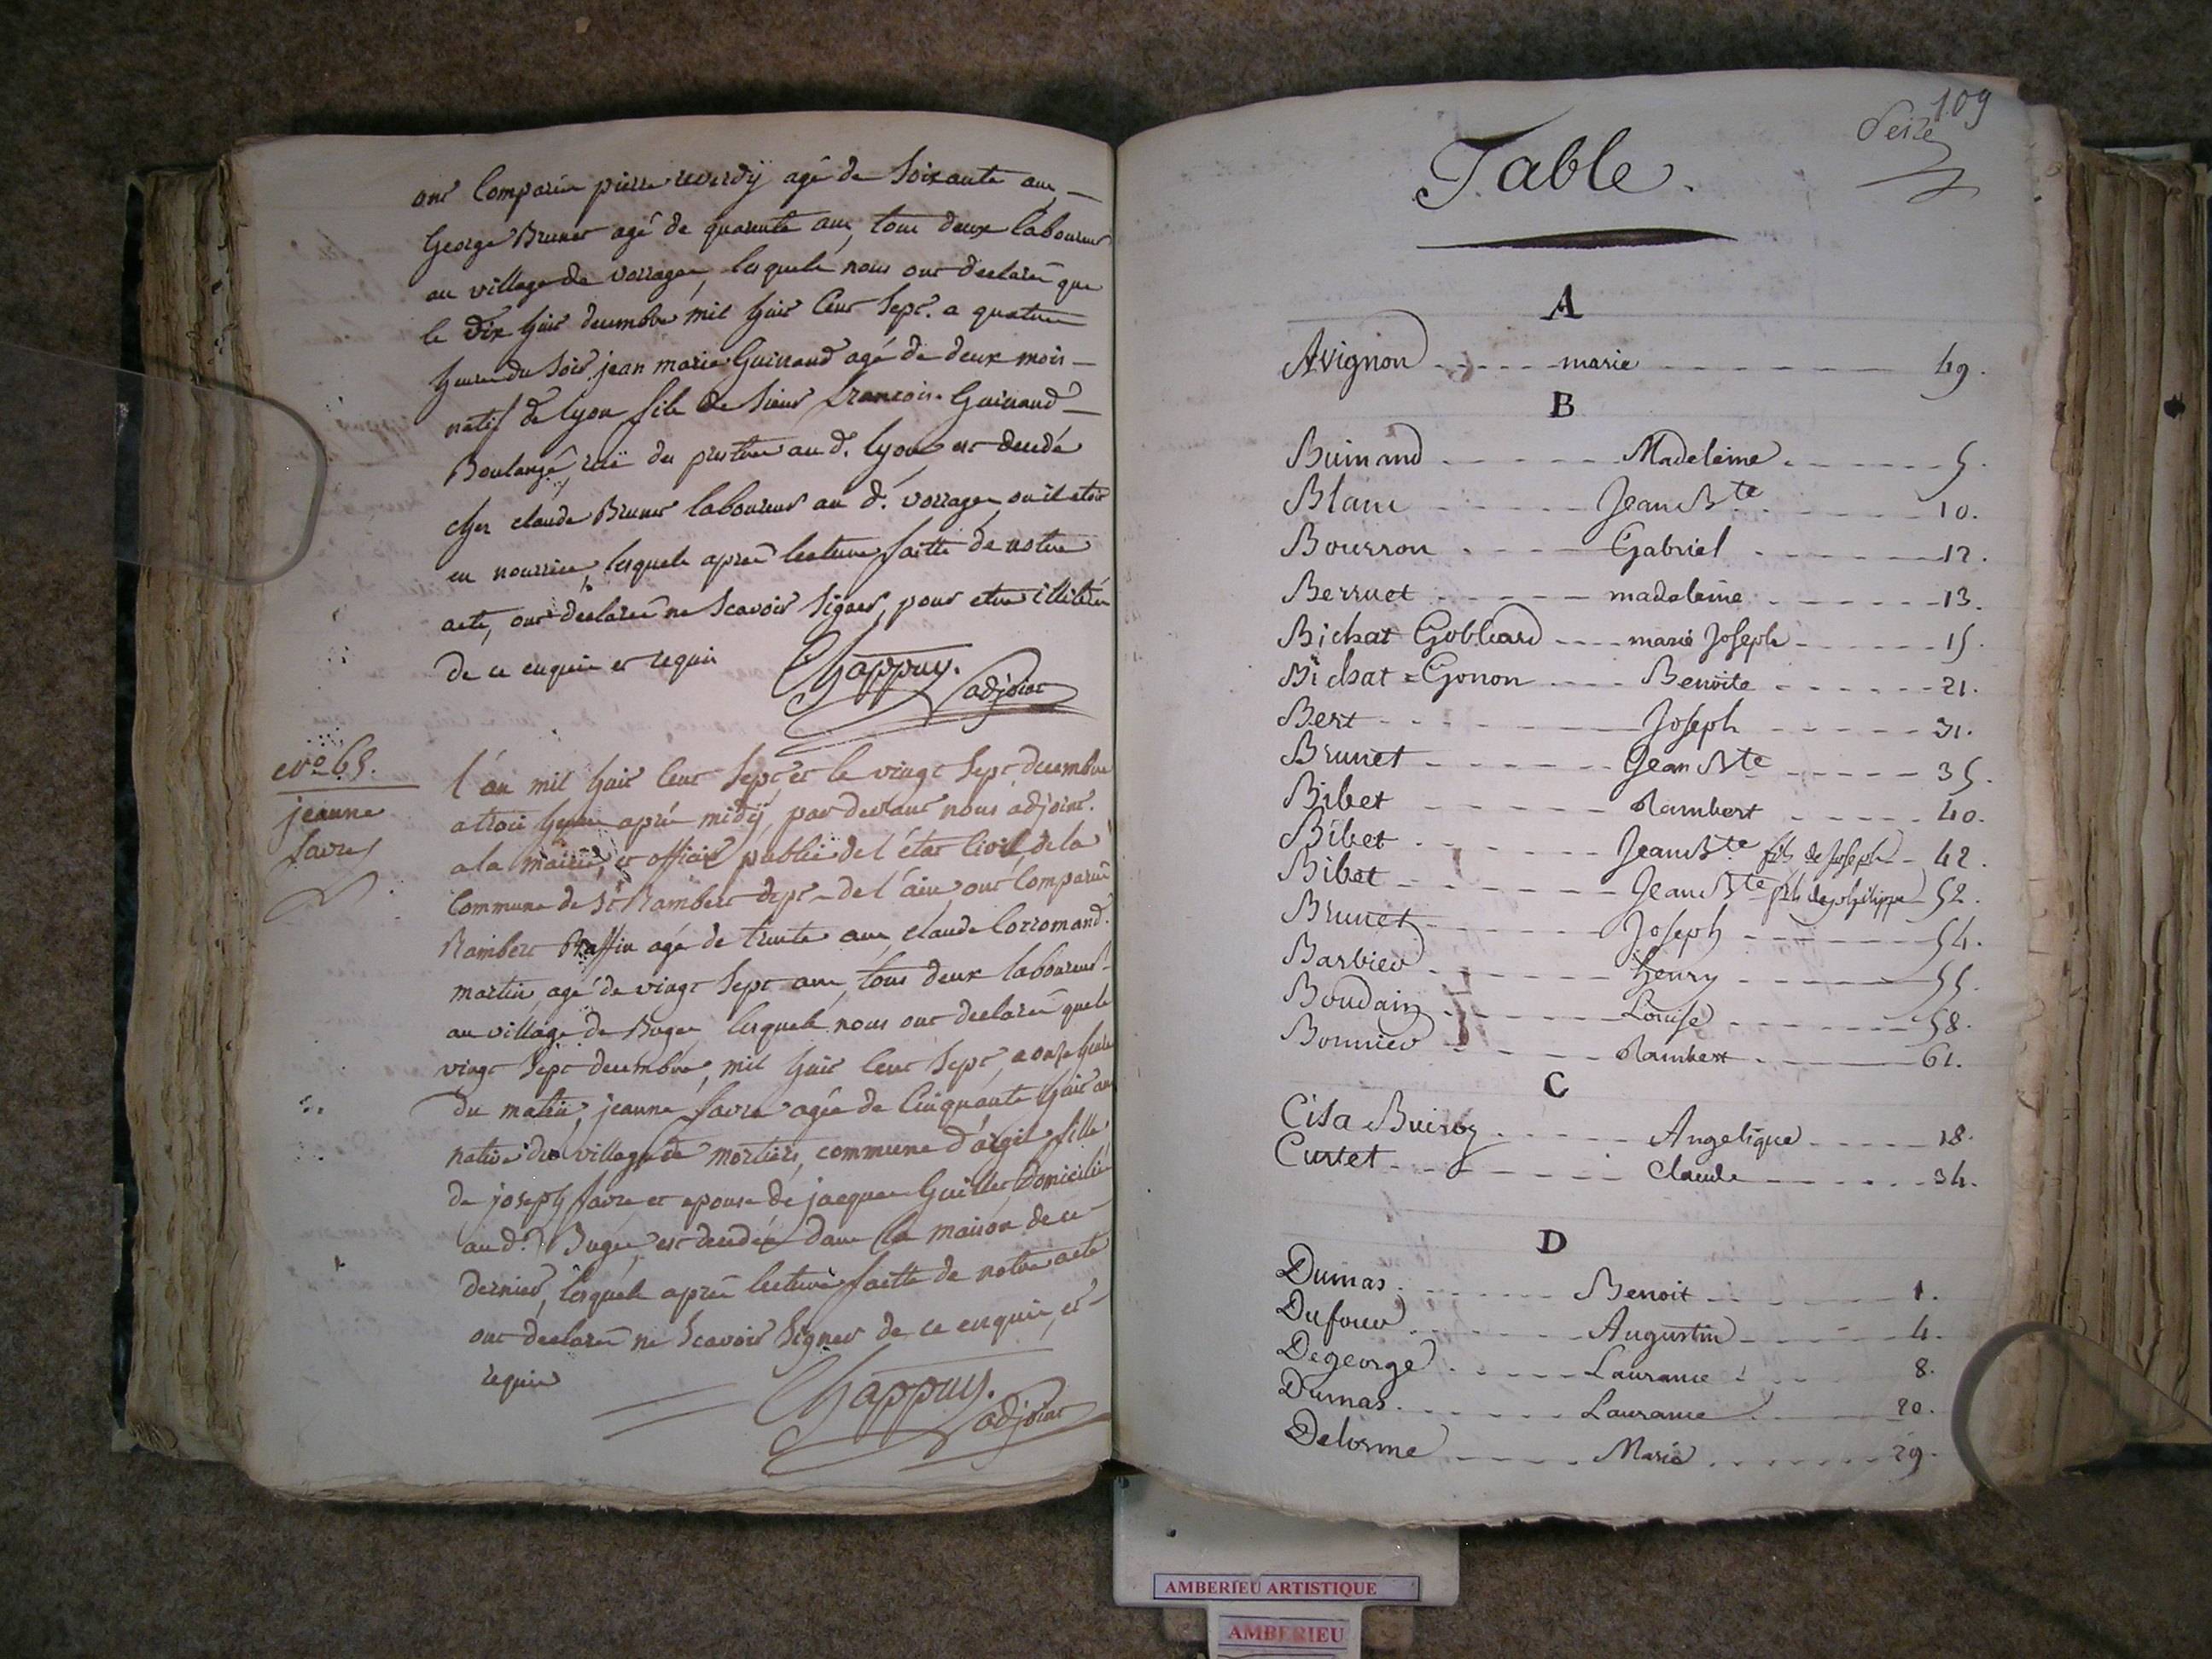 ont Comparu pierre reverdÿ agé de Soixante ans
George Brunet agé de quarente ans, tous deux laboureurs
au village de vorrages, lesquels nous ont declarés que
le dix huit decembre mil huit Cent Sept. a quatre
heures du Soir jean marie Guinand agé de deux mois
natif de lyon fils de Sieur François Guinand
Boulangé, ruë du au d. lyon est decedé
chez claude Brunet laboureur au d. vorrages ou il etoit
en nourrice, lesquels apres lecture faitte de notre
acte, ont declarés ne Scavoir Signer, pour etre illiterés
de ce enquis et requis Chappuy.
adjoint
No 65.
jeanne
favre
l'an mil huit Cent Sept et le vingt Sept decembre
a trois heures aprés midÿ, par devant nous adjoint
a la mairie, et officier public de l'état Civil, de la
Commune de St Rambert dept de l'ain, ont Comparus
Rambert Raffin agé de trente ans, claude Corromand
martin, agé de vingt Sept ans, tous deux laboureurs
au village de Buges lesquels nous ont declarés que le
vingt Sept decembre, mil huit Cent Sept, a onze heures
du matin, jeanne favre agée de Cinquante huit ans
native du village de mortiers, commune d'argit fille
de joseph favre et epouse de jacques Guillet Domicilié
au d. Buges, est decedée dans la maison de ce
dernier, lesquels aprés lecture faitte de notre acte
ont declarés ne Scavoir Signer de ce enquis, et
requis
Chappuy.
adjoint
109
Seize
Table.
A
Avignon marie 49.
B
Buinand Madeleine 5.
Blanc Jean Bte 10.
Bourron Gabriel 12.
Berruet madeleine 13.
Bichat Gobliard marie Joseph 15.
Bichat = Gonon Benoite 21.
Bert Joseph 31.
Brunet Jean Bte 35.
Bibet Rambert 40.
Bibet Jean Bte fils de Joseph 42.
Bibet Jean Bte fils de philippe 52.
Brunet Joseph 54.
Barbier henry 55.
Boudain Louise 58.
Bonnier Rambert 61.
C
Cisa Buiroz Angelique 18.
Curtet Claude 34.
D
Dumas Benoit 1.
Dufour Augustin 4.
Degeorge Laurance 8.
Dumas Laurance 20.
Delorme Marie 29.
AMBERIEU ARTISTIQUE
AMBERIEU